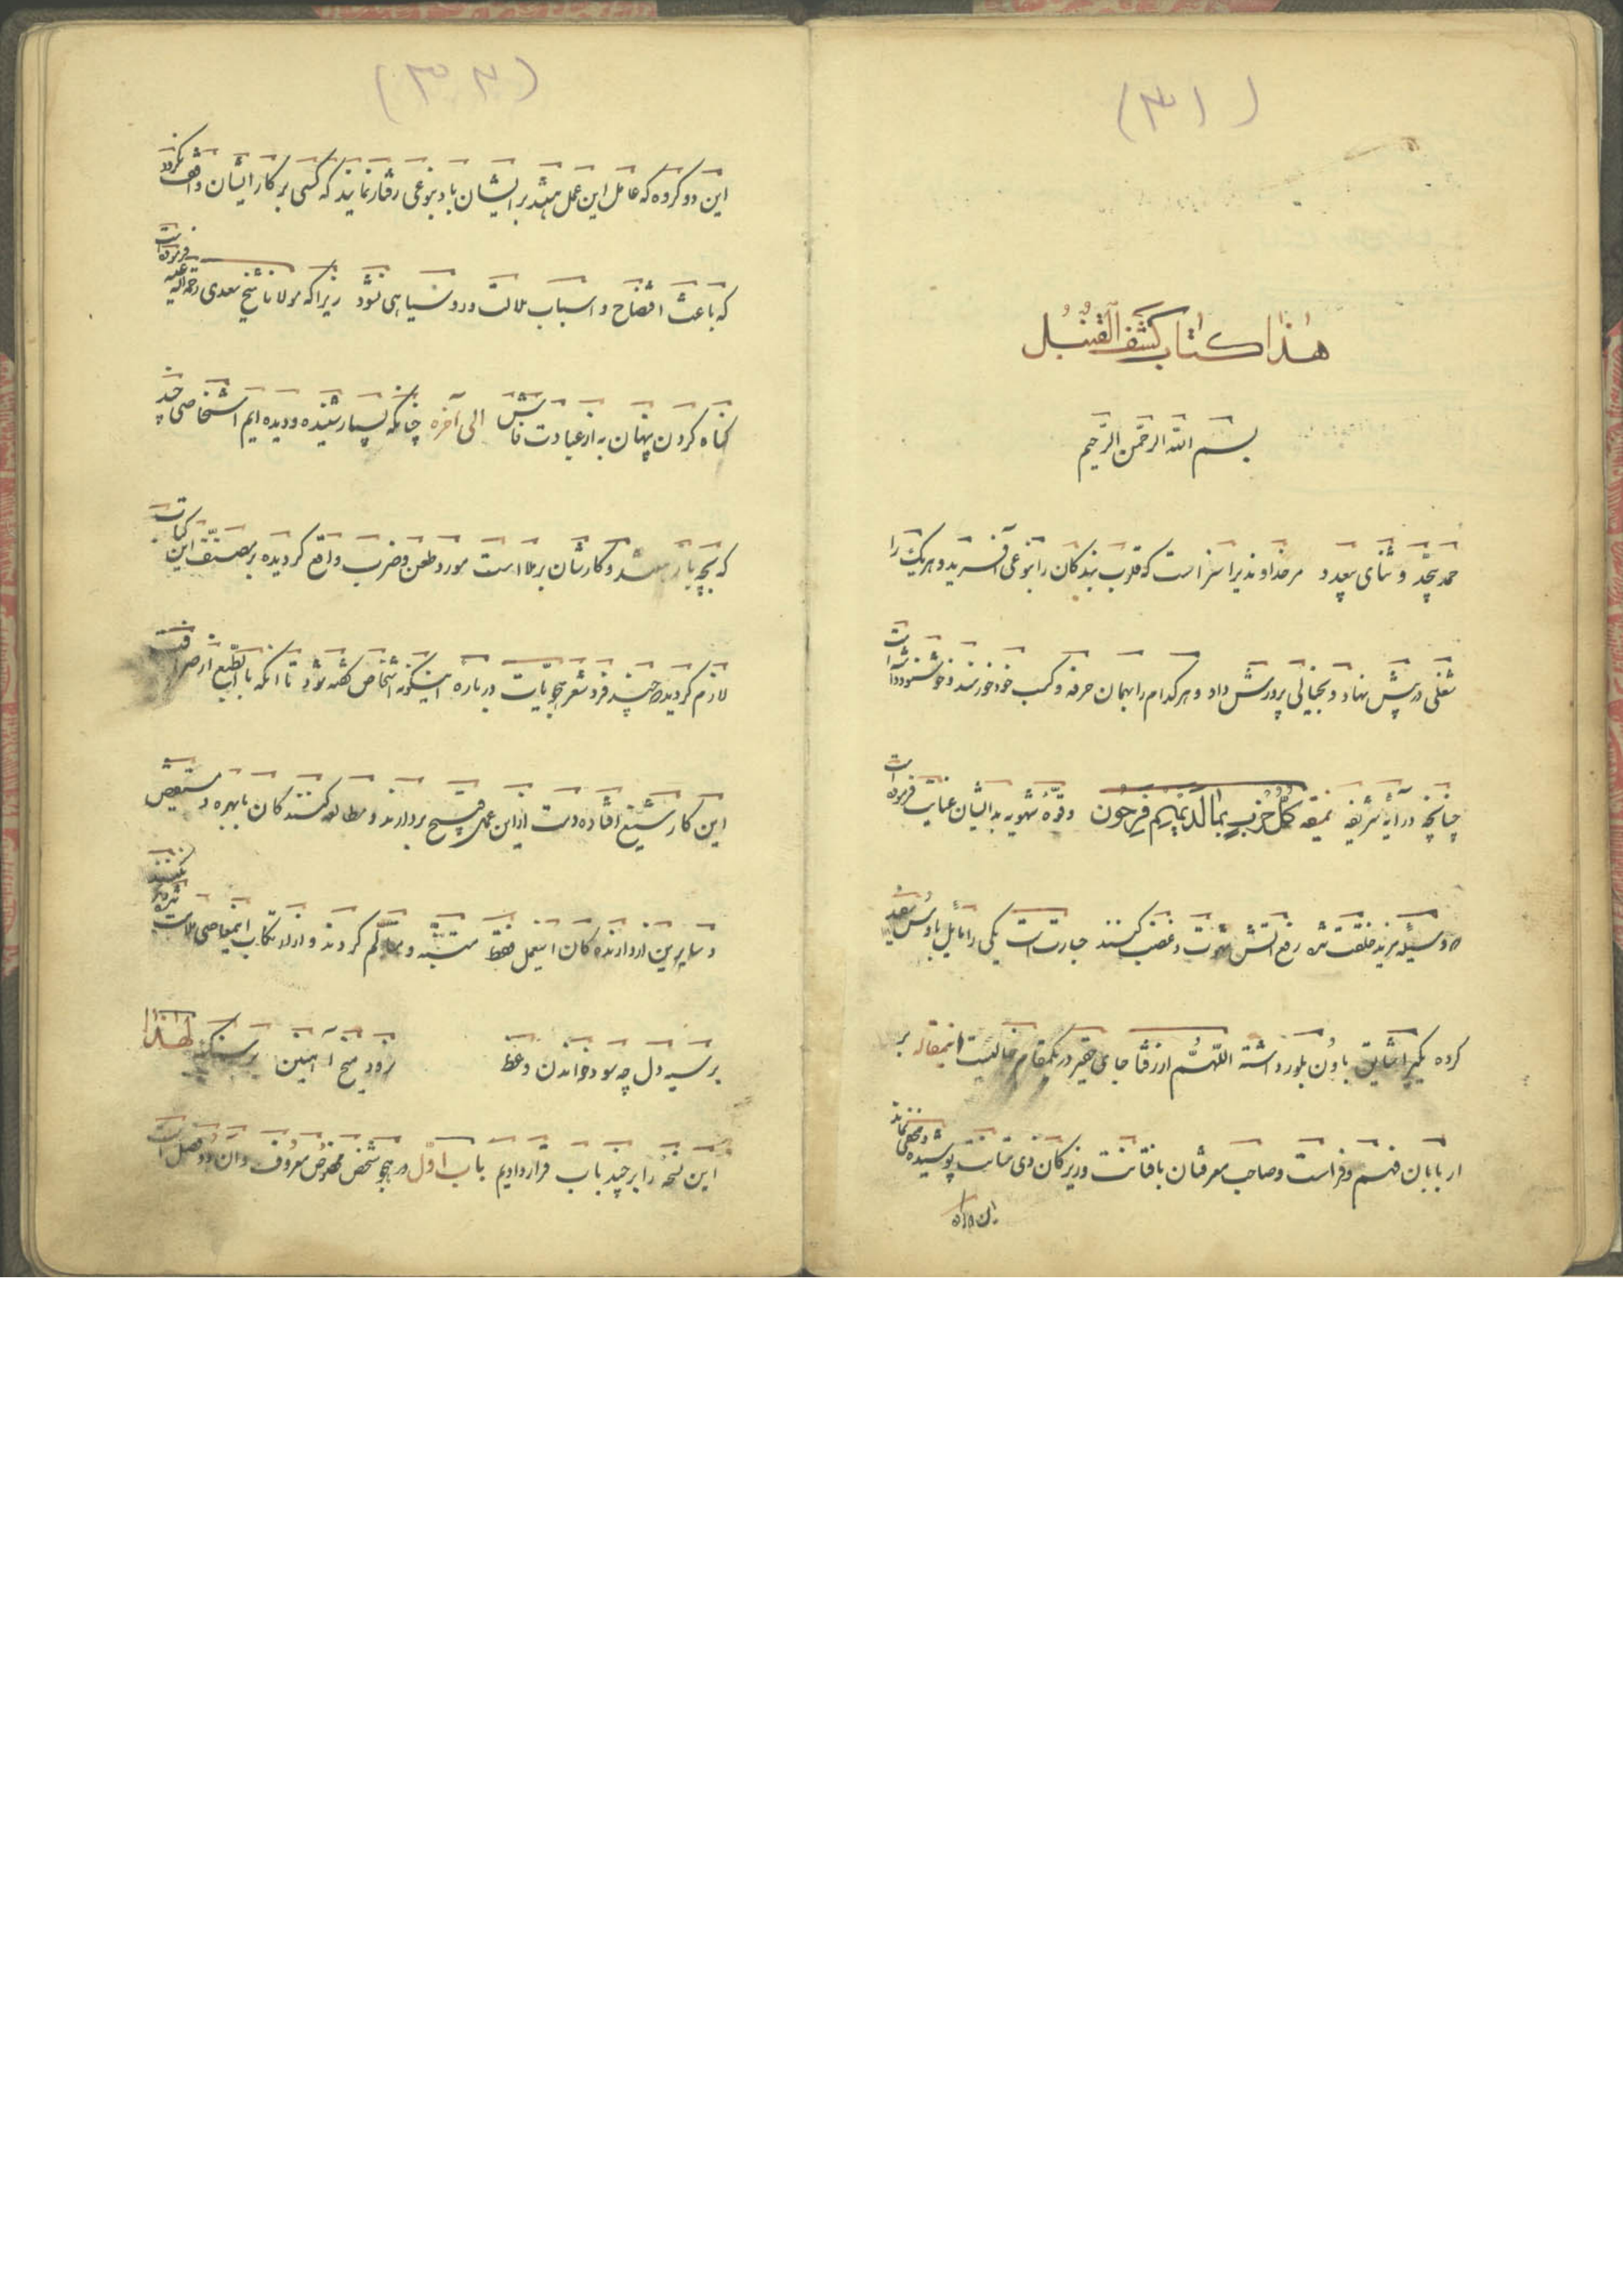 (۳۱)
هذا کتاب کشف القنبل
بسم الله الرحمن الرحیم
حمد بیحد و ثنای بیعدد مر خداوندیرا سزاست که قلوب بندکان را بنوعی آفرید و هریک را
شغلی در پیش نهاد و بخیالی پرورش داد و هر کدام را بهمان حرفه و کسب خود خورسند و خوشنود
چنانچه در آیهٔ شریفه کل حزب بما لدیهم فرحون و قوهٔ شهویه بدایشان عنایت فرموده است
شهوت و غضب کنند عبارتست یکی را مایل
کرده یکیرا شایق داشته اللهم ارزقنا جای حقیر در یکمقام خالیست اینمقاله بر
اربابان فهم و فراست و صاحب معرفتان بافتانت و زیرکان ذی متانت پوشیده و مخفی نماند
این دو کروه
(۳۲)
این دو کروه که عامل این عمل میباشند بر ایشان باد بنوعی رفتار نمایند که کسی بر کار ایشان واقف نکردد
که باعث افتضاح و اسباب ملالت و روسیاهی نشود زیرا که مولانا شیخ سعدی رحمة الله علیه فرموده است
کناه کردن پنهان به از عبادت فاش الی آخره چنانکه بسیار شنیده و دیده ایم اشخاصی چند
که بچه باز میباشند و کارشان برملا است مورد طعن و ضرب واقع کردیده بر مصنف این کتاب
لازم کردید چند فرد شعر هجویات درباره اینکونه اشخاص کفته شود تا آنکه بالطبع از صرافت
این کار شنیع افتاده دست از این عمل قبیح بردارند و مطالعه کنندکان با بهره و مستفیض
و سایرین از دارنده کان اینعمل فقط متنبه و کردند و از ارتکاب اینمعاصی
بر سیه دل چه سود خواندن وعظ نرود میخ آهنین بر سنک لهذا
این نسخه را بر چند باب قرار دادیم باب اول در هجو شخص معروف و آن دو فصل است